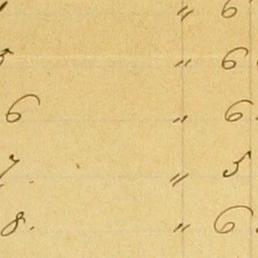 " 6
5 " 6
6 " 6.
7. " 5
8. " 6.